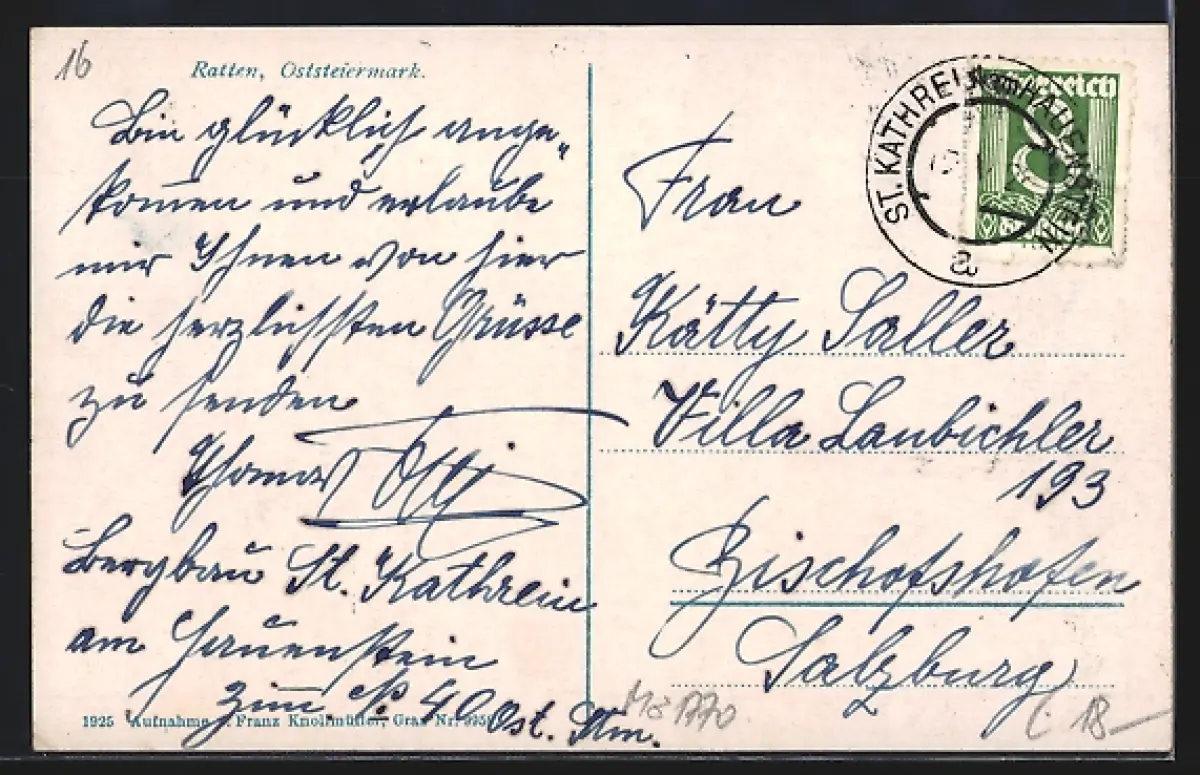 16
Ratten, Oststeiermark.
Bin glücklich ange-
kom̄en und erlaube
mir Ihnen von hier
die herzlichsten Grüsse
zu senden
Thomas
Bergbau St. Kathrein
am Hauenstein
Zim̄ No 40 Ost. Stm.
1925 Aufnahme Franz Knollmüller, Graz Nr.
ST. KATHREIN am HAUENSTEIN
a
Österreich
Frau
Kätty Saller
Villa Laubichler
193
Bischofshofen
Salzburg
18-